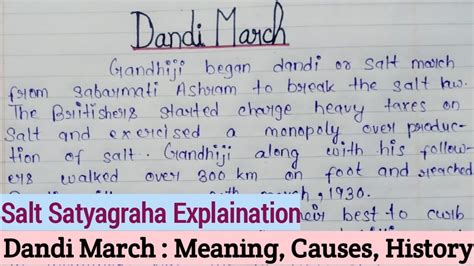 Dandi March
Gandhiji began dandi or salt march
from sabarmati Ashram to break the salt law.
The Britishers started charge heavy taxes on
Salt and exercised a monopoly over produc-
tion of salt. Grandhiji along with his follow-
ers walked over 300 km on foot and reached
march, 1930.
Salt Satyagraha Explaination
their best to curb
Dandi March : Meaning, Causes, History